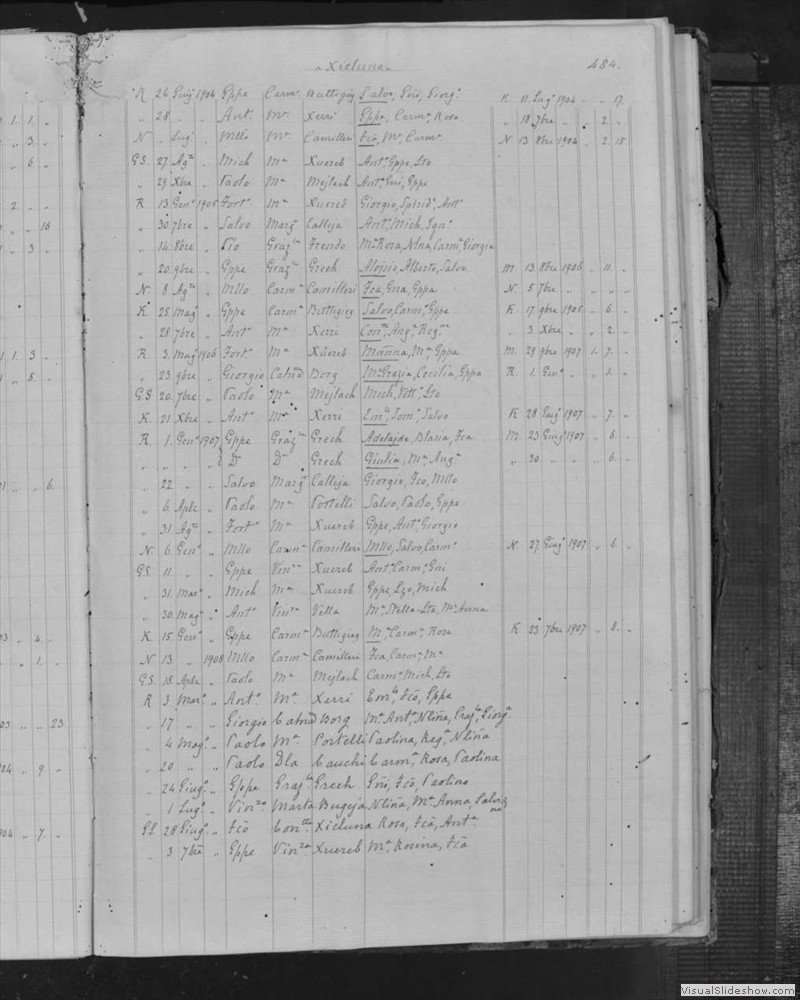 1 1 1 "
" 3 "
" 6 "
2 " "
" " 16
" 3 "
1 1 3 "
" 8 "
" " 6
03 " 4 "
" " 1 "
03 " " 23
04 " 9 "
904 " 7 "
Xicluna 484.
R 26 Giug 1904 Gppe Carmª Buttigieg Salvo, Gni, Giorgº K. 11. Lugº 1904 " " 17.
" 28 " " Antº Mª Xerri Gppe, Carmª, Rosa " 18 7bre " " 2 "
N " Lugº " Mllo Mª Camilleri Fcã, Mª, Carmª N 13 8bre 1904 " 2 15
G.S. 27 Agto " Mich Mª Xuereb Antº, Gppe, Lto
" 29 Xbre " Paolo Mª Mejlach Antº, Gni, Gppe
R 13 Gen° 1905 Fortº Mª Xuereb Giorgio, Spirid°, Ant°
" 30 7bre " Salvo Margª Calleja Ant°, Mich, Ign°
" 14 8bre " Pio Grazla Frendo Mª Rosa, Ntna, Carmª, Giorgia
" 20 9bre " Gppe Grazla Grech Aloisio, Alberto, Salvo M. 13. 8bre 1906 " 11. "
N 8 Agto " Mllo Carmª Camilleri Fca, Gna, Gppa N 5 7bre " " " "
K 25 Magº " Gppe Carmª Buttigieg Salvo, Carmº, Gppe K. 17 9bre 1905 " 6. "
" 28 7bre " Antº Mª Xerri Contta, Angª, Regna " 3 Xbre " " 2 "
R. 3. Magº 1906 Fortº Mª Xuereb Marina, Mª, Gppa M. 29 9bre 1907 1. 7. "
" 23 9bre " Giorgio Catnã Borg Mª Grazia, Cecilia, Gppa R. 1. Gen° " " 1. "
G.S 20. 7bre " Paolo Mª Mejlach Mich, Vittº, Lto
K. 21. Xbre " Antº Mª Xerri Emla, Tomº, Salvo K 28 Giugº 1907 " 7. "
R. 1. Gen° 1907 Gppe Grazla Grech Adelaide, Blasia, Fca M. 23 Giugº 1907 " 6. "
" " " " D° Dª Grech Giulia, Mª, Angª " 30 " " " 6. "
" 22 " " Salvo Margª Calleja Giorgio, Fco, Mllo
" 6 Aple " Paolo Mª Portelli Salvo, Paolo, Gppe
" 31. Agto " Fortº Mª Xuereb Gppe, Antº, Giorgio
N 6. Gen° " Mllo Carmª Camilleri Mllo, Salvo, Carmº N. 27. Giugº 1907 " 6. "
G.S. 11 " " Gppe Vinza Xuereb Antº, Carmº, Gni
" 31. Marº " Mich Mª Xuereb Gppe, Lzo, Mich
" 30. Magº " Antº Vinza Vella Mª Stella, Lta, Mª Anna
K. 15. Gen° " Gppe Carmª Buttigieg Mª, Carmª, Rosa K 23 7bre 1907 " 8. "
N 13 " 1908 Mllo Carmª Camilleri Fca, Carmª, Mª
G.S. 18. Aple " Paolo Mª Mejlach Carmº, Mich, Lto
R 3 Marº " Antº Mª Xerri Emlo, Fcõ, Gppe
" 17 " " Giorgio Catnã Borg Mª Antª, Ntina, Grazla, Giorgª
" 4 Magº " Paolo Mª Portelli Paolina, Regª, Ntina
" 20 " " Paolo Dla Cauchi Carmª, Rosa, Paolina
" 24 Giugº " Gppe Grazla Grech Gni, Fcõ, Paolino
" 1 Lugº " Vinzo Marta Bugeja Ntina, Mª Anna, Salvina
G.S. 28 Giugº " Fcõ Contta Xicluna Rosa, Fcã, Antª
" 3 7bre " Gppe Vinza Xuereb Mª, Rosina, Fcã
VisualSlideshow.com